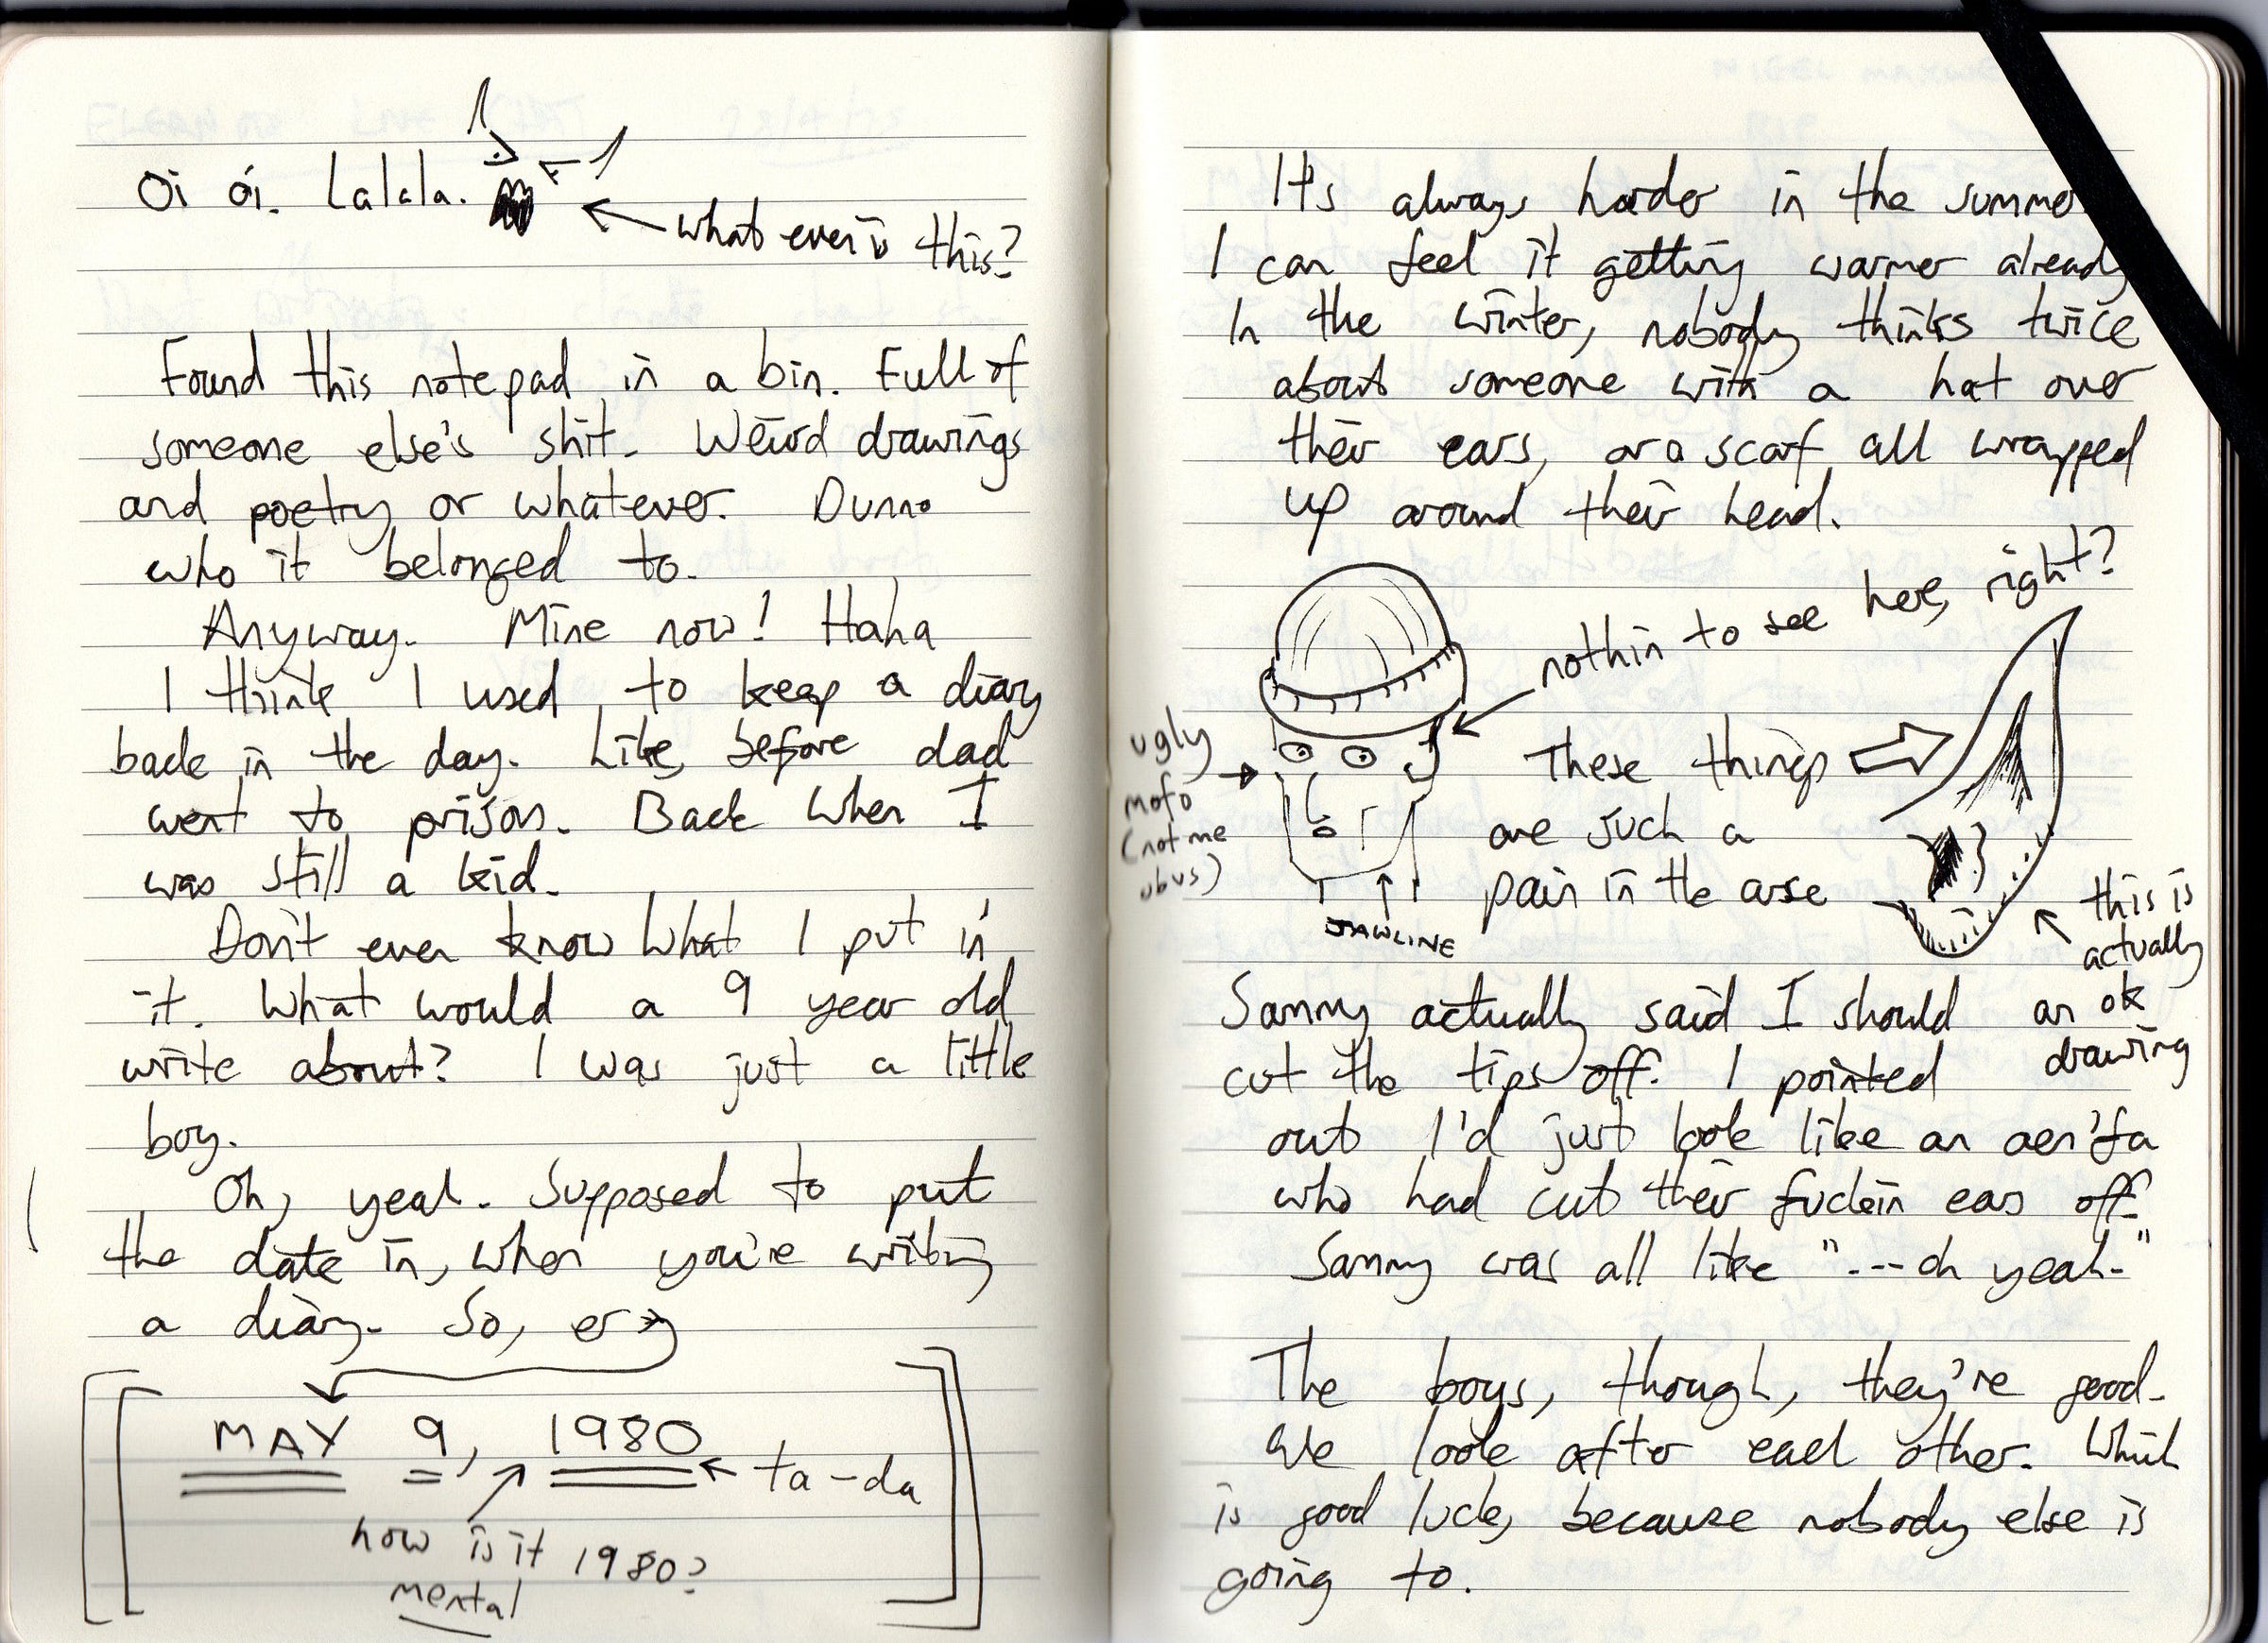 Oi oi. Lalala.
what even is this?
Found this notepad in a bin. Full of
someone else's shit. Weird drawings
and poetry or whatever. Dunno
who it belonged to.
Anyway. Mine now! Haha
I think I used to keep a diary
back in the day. Like, before dad
went to prison. Back when I
was still a kid.
Don't even know what I put in
it. What would a 9 year old
write about? I was just a little
boy.
Oh, yeah. Supposed to put
the date in, when you're writing
a diary. So, er
MAY 9, 1980
ta-da
how is it 1980?
mental
It's always harder in the summer
I can feel it getting warmer already
In the winter, nobody thinks twice
about someone with a hat over
their ears, or a scarf all wrapped
up around their head.
nothin to see here, right?
ugly
mofo
(not me
obvs)
JAWLINE
These things
are such a
pain in the arse
this is
actually
an ok
drawing
Sammy actually said I should
cut the tips off. I pointed
out I'd just look like an aen'fa
who had cut their fuckin ears off.
Sammy was all like "...oh yeah."
The boys, though, they're good.
We look after each other. Which
is good luck, because nobody else is
going to.